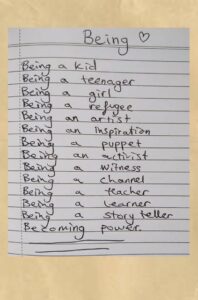 Being ♡
Being a kid
Being a teenager
Being a girl
Being a refugee
Being an artist
Being an inspiration
Being a puppet
Being an activist
Being a witness
Being a channel
Being a teacher
Being a learner
Being a story teller
Becoming power.